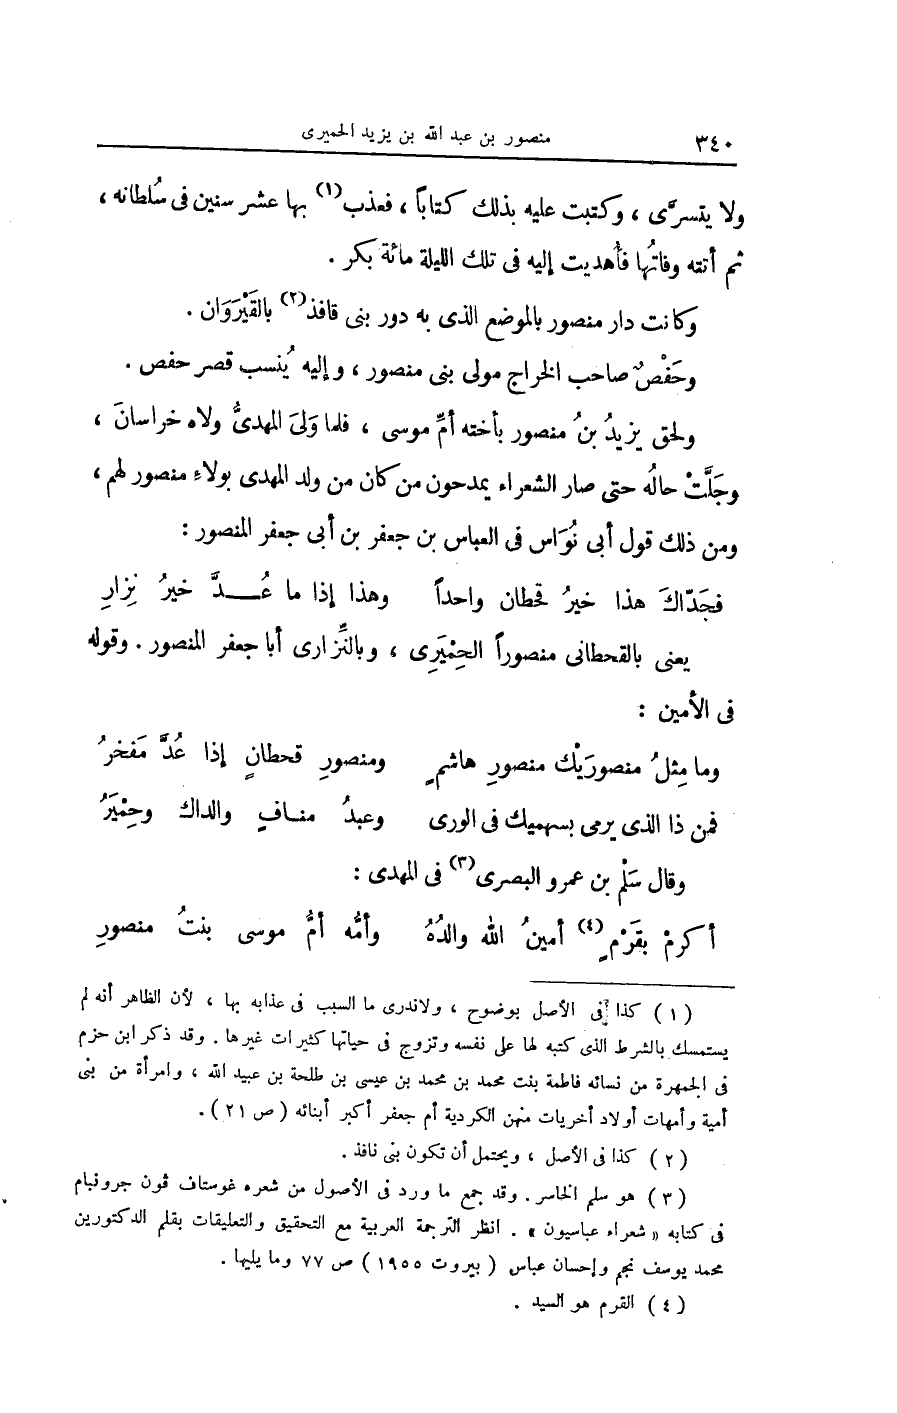 ٣٤٠ منصور بن عبد الله بن يزيد الحميرى
ولا يتسرَّى ، وكتبت عليه بذلك كتاباً ، فعذب(١) بها عشر سنين فى سُلطانه ،
ثم أتته وفاتُها فأُهديت إليه فى تلك الليلة مائة بكر .
وكانت دار منصور بالموضع الذى به دور بنى قافذ(٢) بالقَيْرَوَان .
وحَفْصٌ صاحب الخراج مولى بنى منصور ، وإليه يُنسب قصر حفص .
ولحق يزيدُ بنُ منصور بأخته أمِّ موسى ، فلما وَلىَ المهدىُّ ولاه خراسانَ ،
وجَلَّتْ حالُه حتى صار الشعراء يمدحون من كان من ولد المهدى بولاءِ منصور لهم ،
ومن ذلك قول أبى نُوَاس فى العباس بن جعفر بن أبى جعفر المنصور :
فجَدّاكَ هذا خيرُ قحطان واحداً وهذا إذا ما عُــدَّ خيرُ نِزارِ
يعنى بالقحطانى منصوراً الحِمْيَرِى ، وبالنِّزارى أبا جعفر المنصور . وقوله
فى الأمين :
وما مِثلُ منصورَيْك منصورِ هاشمٍ ومنصورِ قحطانٍ إذا عُدَّ مَفخرُ
فمن ذا الذى يرمى بسهميك فى الورى وعبدُ منـافٍ والداك وحِمْيَرُ
وقال سَلْم بن عمرو البصرى(٣) فى المهدى :
أكرمْ بقَرْمٍ(٤) أمينُ الله والدُهُ وأمُّه أمُّ موسى بنتُ منصورِ
(١) كذا فى الأصل بوضوح ، ولاندرى ما السبب فى عذابه بها ، لأن الظاهر أنه لم
يستمسك بالشرط الذى كتبه لها على نفسه وتزوج فى حياتها كثيرات غيرها . وقد ذكر ابن حزم
فى الجمهرة من نسائه فاطمة بنت محمد بن محمد بن عيسى بن طلحة بن عبيد الله ، وامرأة من بنى
أمية وأمهات أولاد أخريات منهن الكردية أم جعفر أكبر أبنائه (ص ٢١) .
(٢) كذا فى الأصل ، ويحتمل أن تكون بنى نافذ .
(٣) هو سلم الخاسر . وقد جمع ما ورد فى الأصول من شعره غوستاف ڤون جرونبام
فى كتابه « شعراء عباسيون » . انظر الترجمة العربية مع التحقيق والتعليقات بقلم الدكتورين
محمد يوسف نجم وإحسان عباس (بيروت ١٩٥٥) ص ٧٧ وما يليها .
(٤) القرم هو السيد .